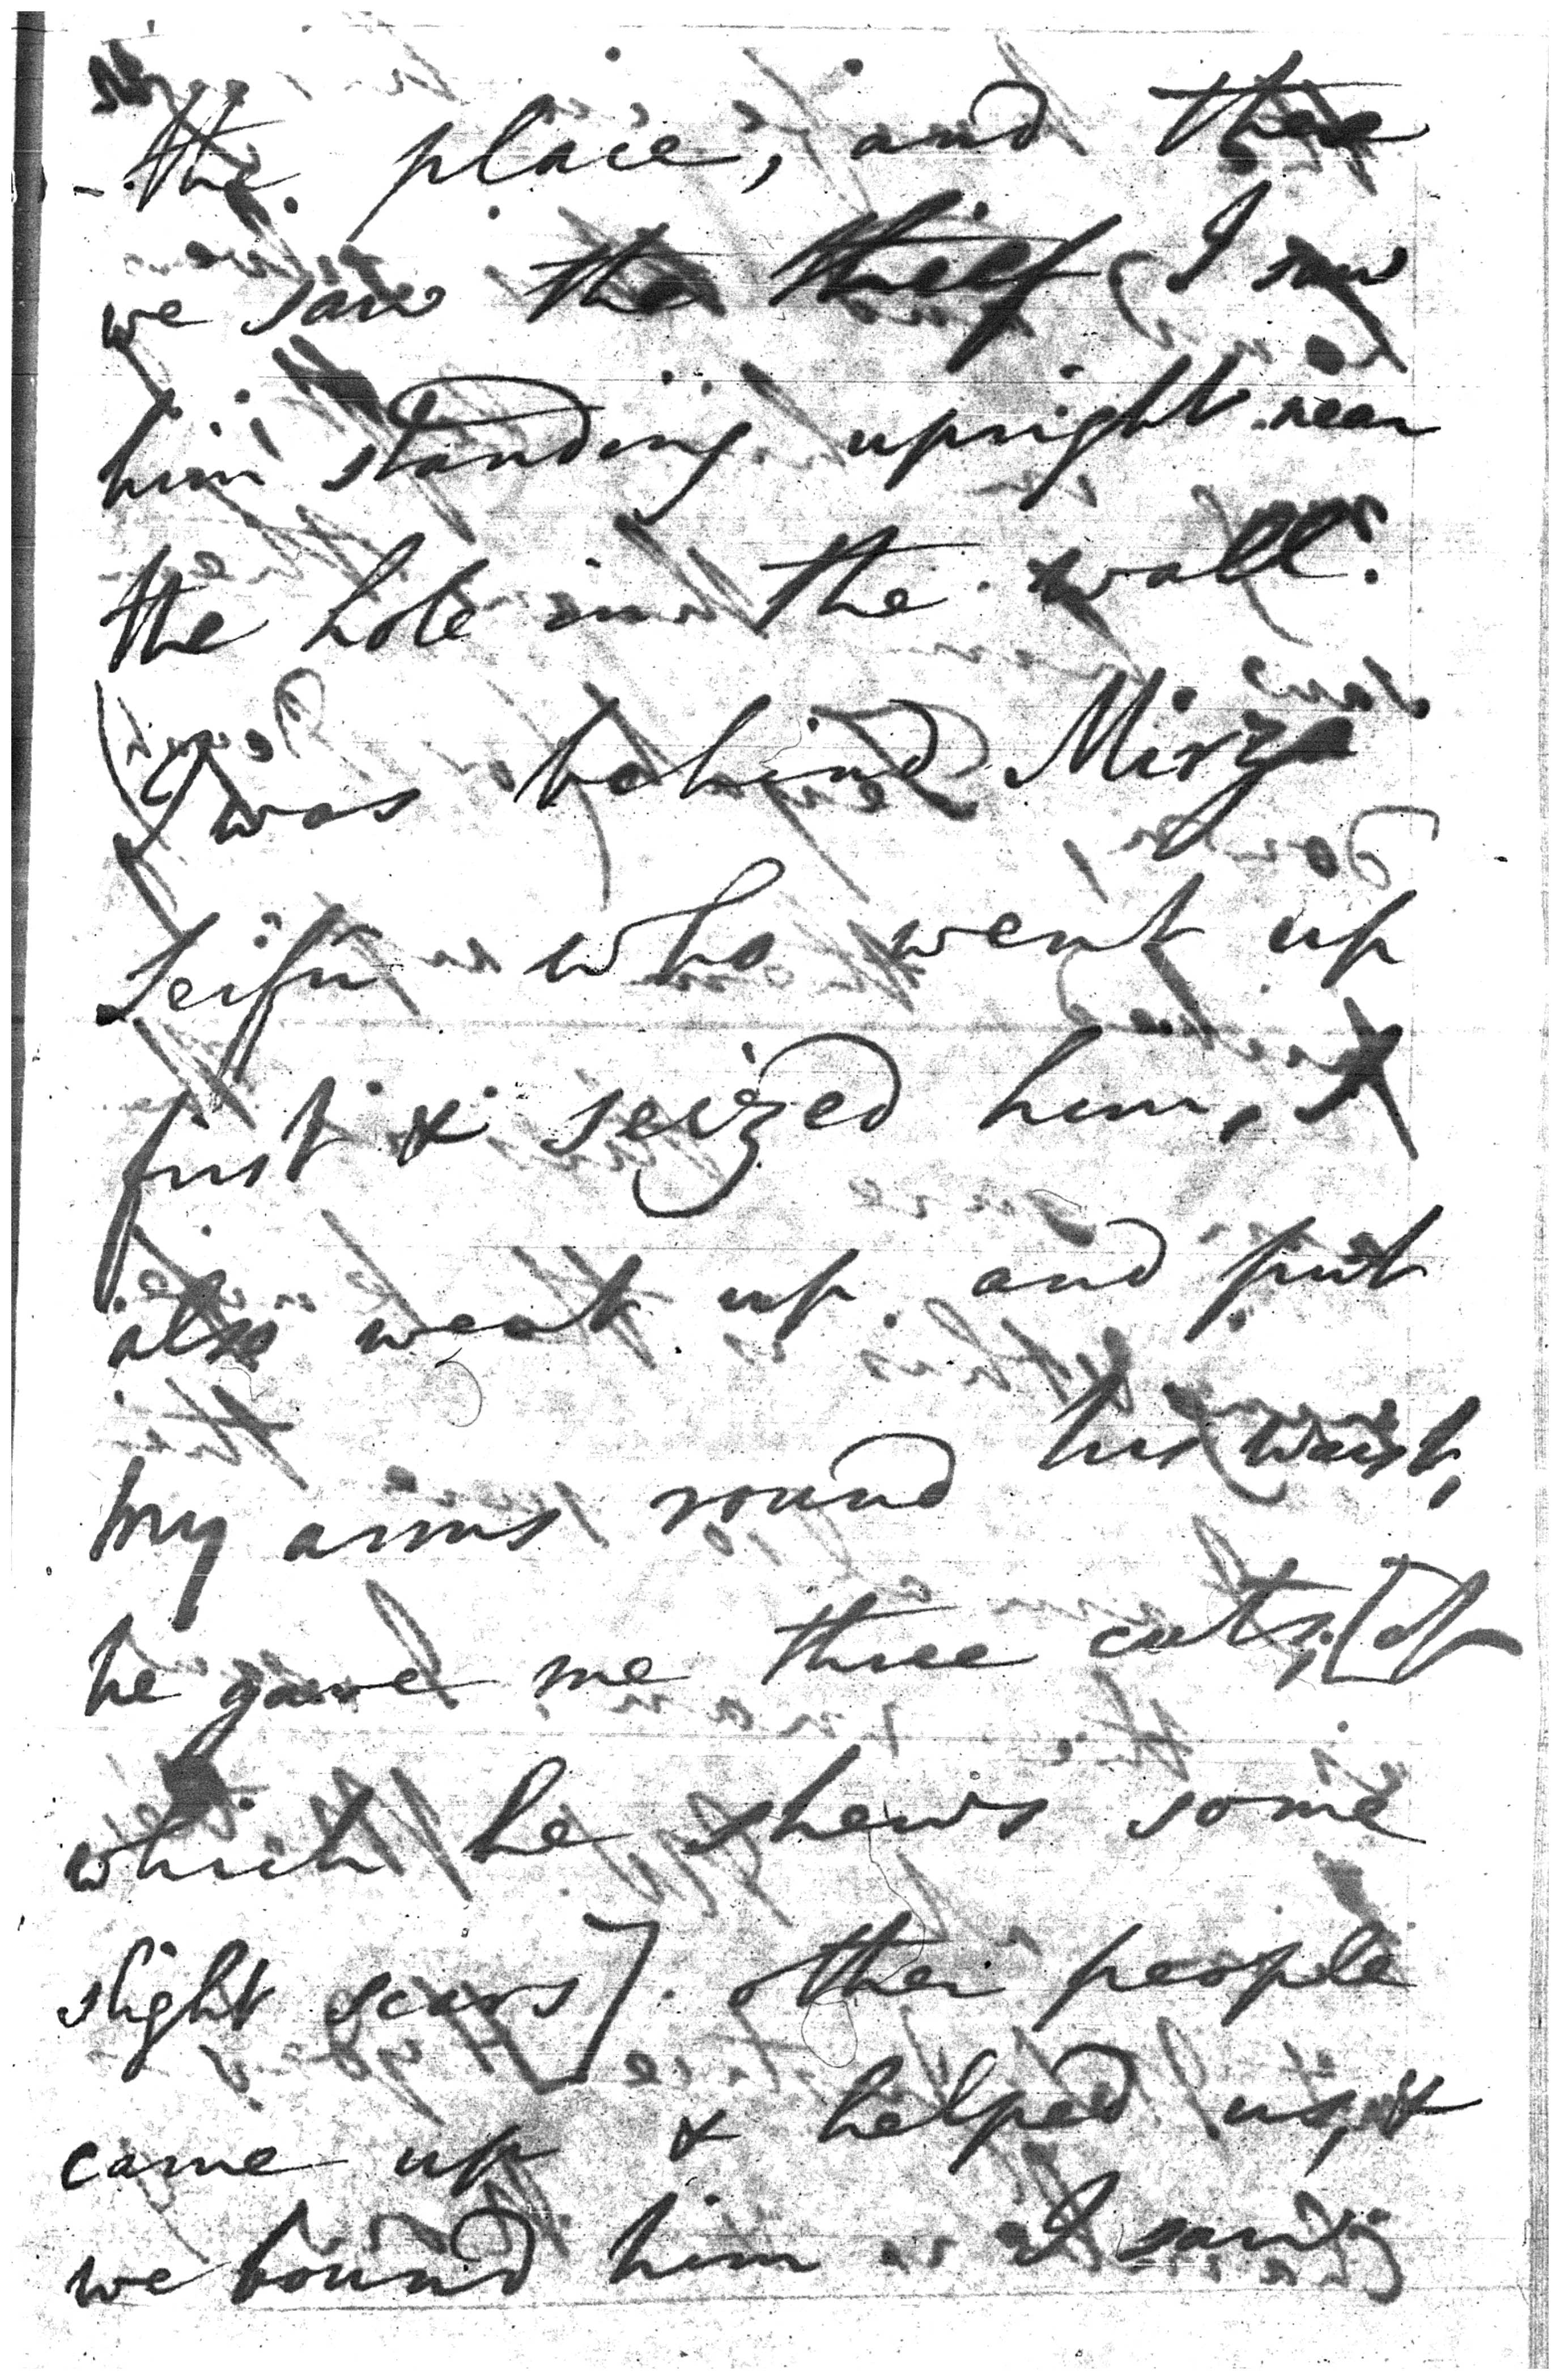 the place, and there
we saw the thief, I saw
him standing upright near
the hole in the wall.
I was behind Mirza
Seifu who went up
first & seized him, I
also went up and put
my arms round his waist,
he gave me three cuts, [of
which he shews some
slight scars]. other people
came up & helped us, &
we bound him I saw